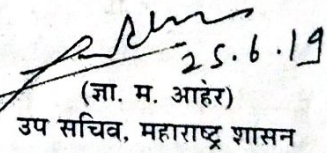 25.6.19
(ज्ञा. म. आहेर)
उप सचिव, महाराष्ट्र शासन